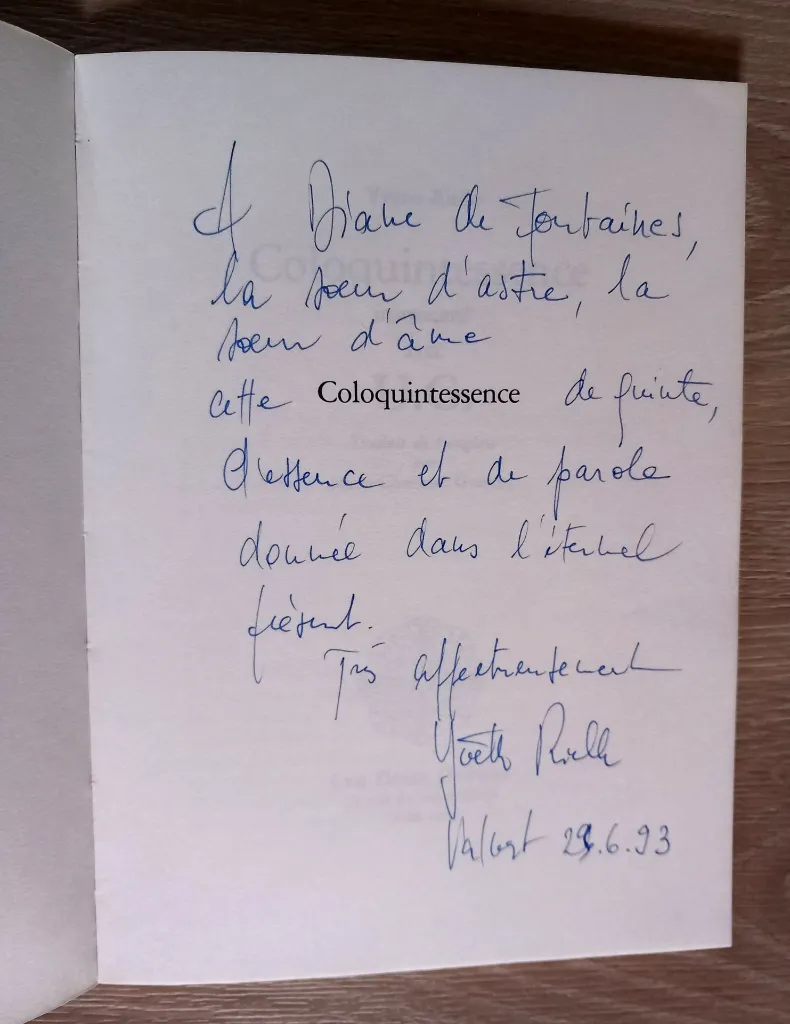 A Diane de Fontaines,
la sœur d'astre, la
sœur d'âme
cette Coloquintessence de quinte,
d'essence et de parole
donnée dans l'éternel
présent.
Très affectueusement